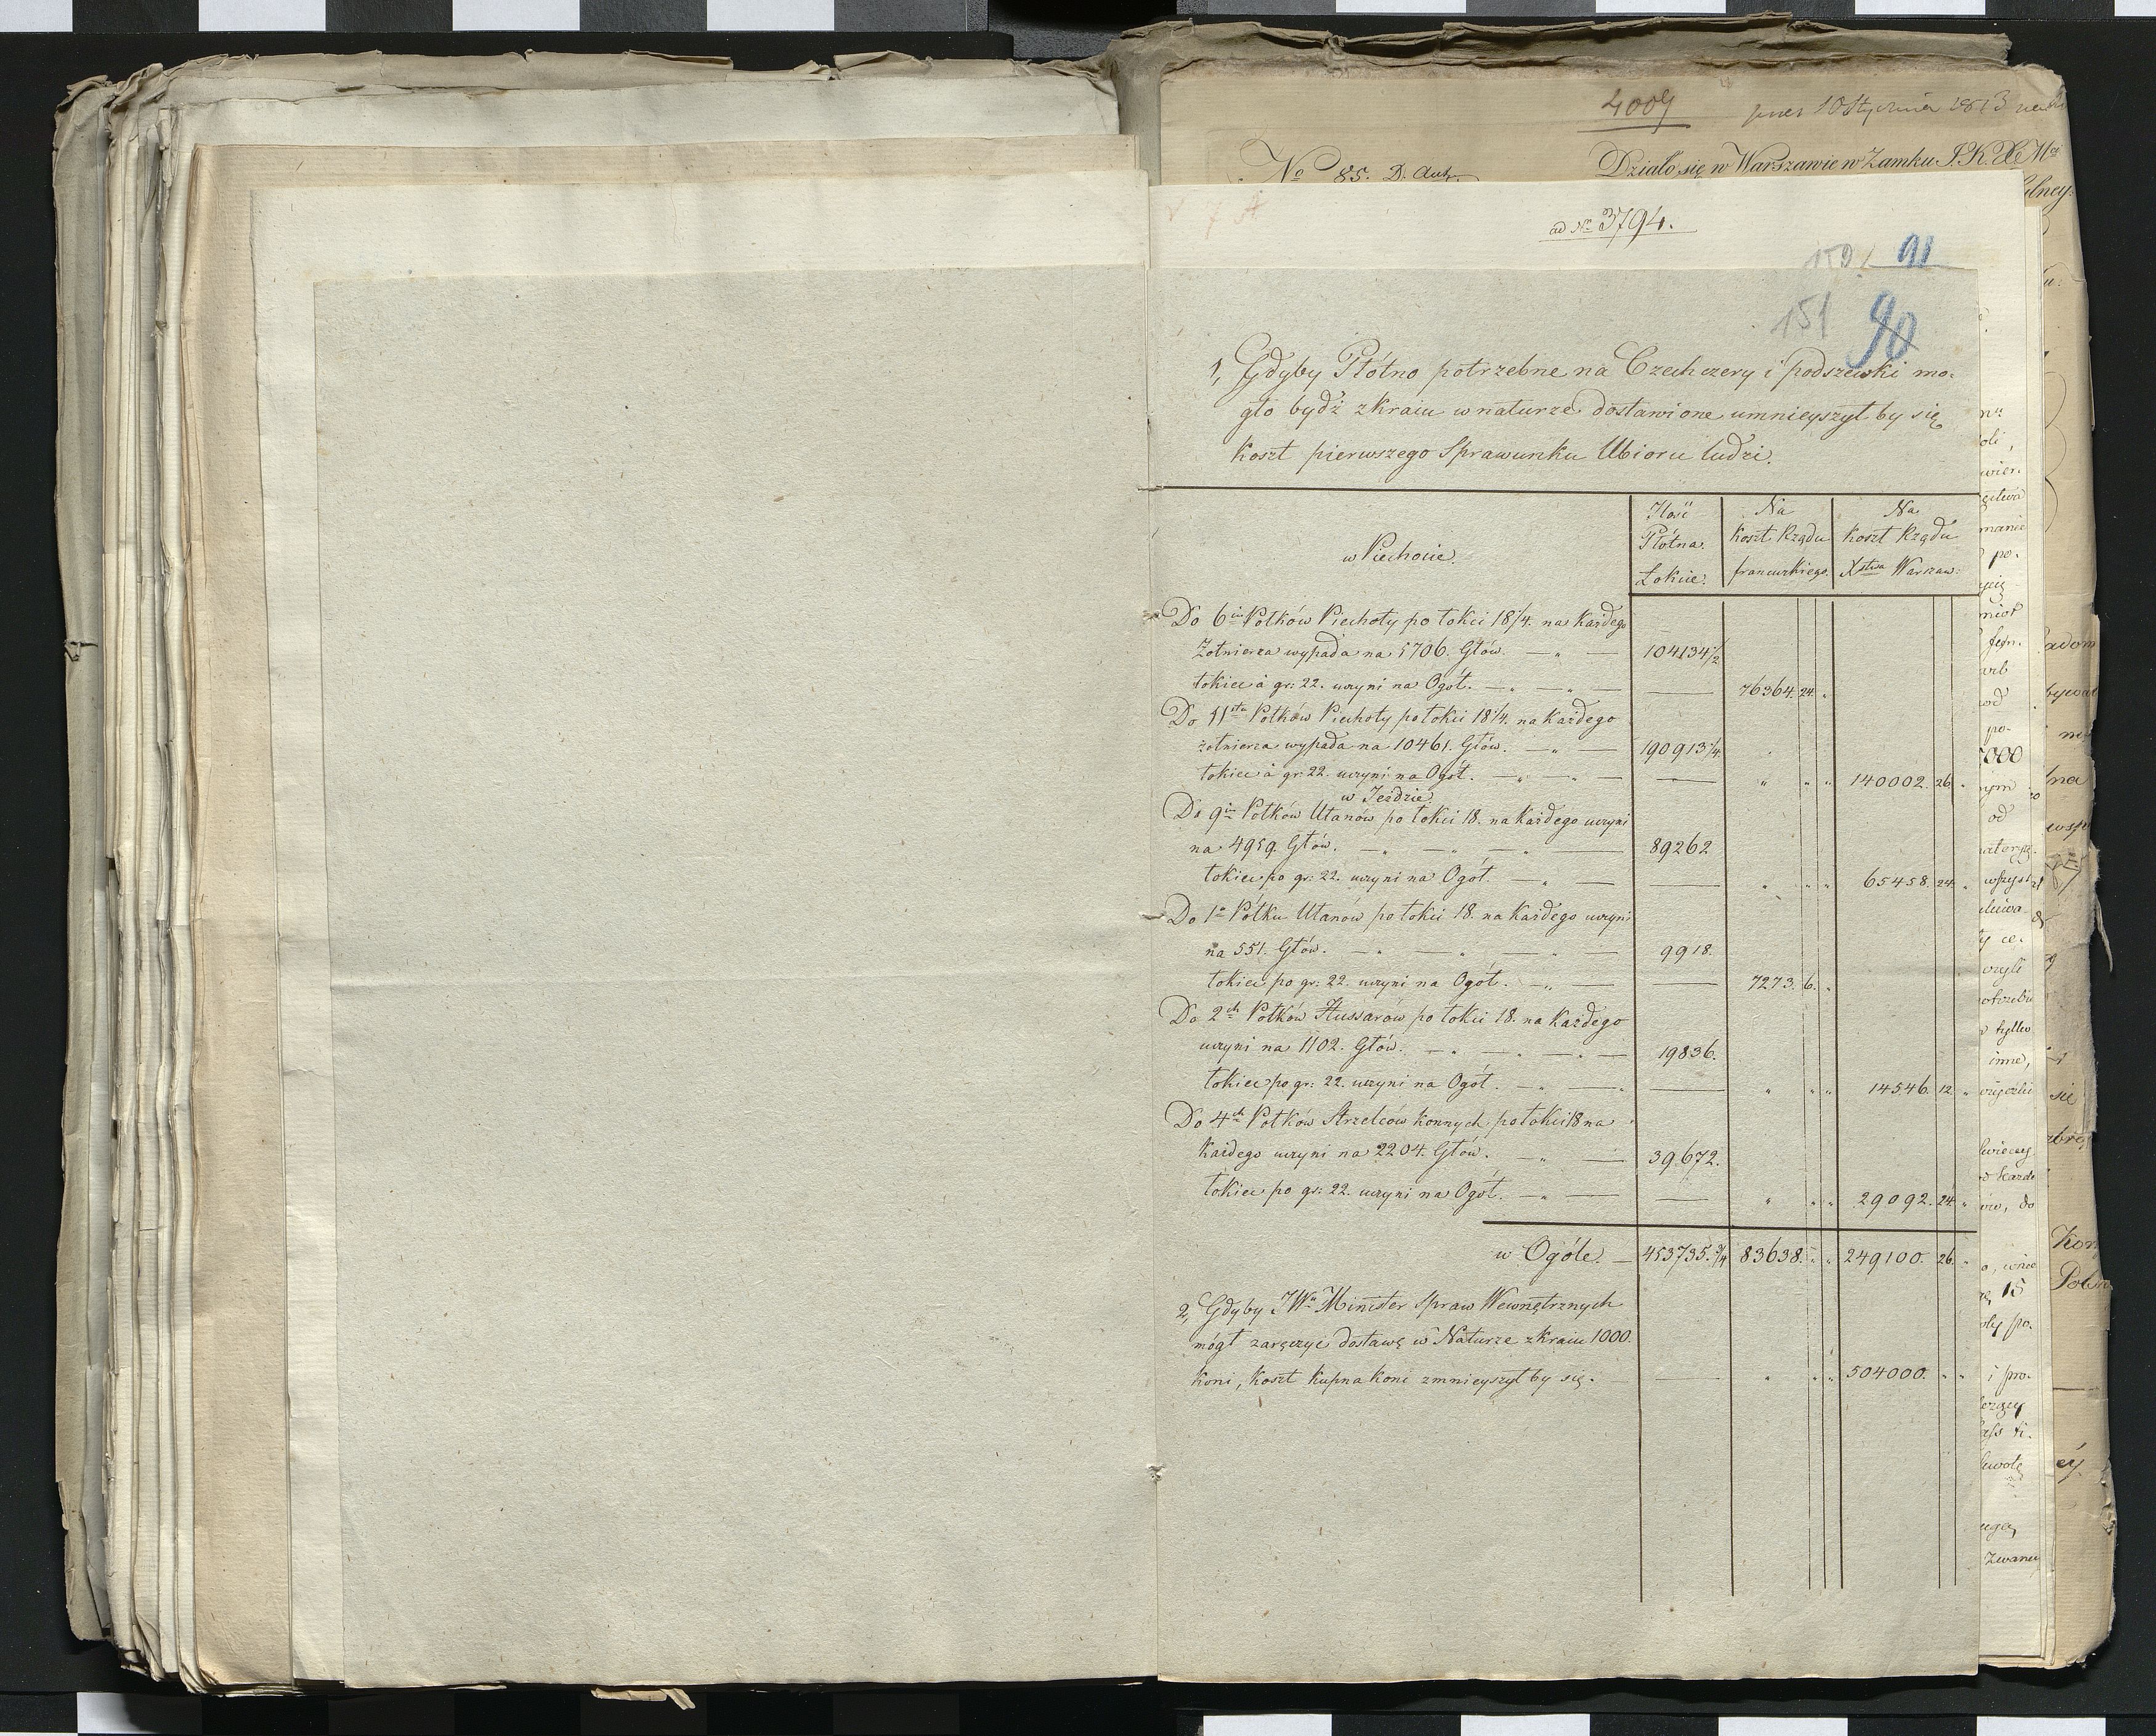 4009
10 Stycznia 1813
No 85. D. Aut.
Działo się w Warszawie w Zamku J. K. X. Mci
ad No 3794.
150. / 91
151 90
1, Gdyby Płótno potrzebne na Czechczery i podszewki mo-
gło bydź z kraiu w naturze dostawione umnieyszył by się
koszt pierwszego Sprawunku Ubioru ludzi.
w Piechocie. | Ilość Płótna. Łokcie. | Na koszt Rządu francuzkiego. | Na koszt Rządu Xstwa Warszaw:
Do 6ciu Połków Piechoty po łokci 18 1/4. na każdego
Żołnierza wypada na 5706. Głów. — „ — 104134 1/2
łokiec à gr: 22. uczyni na Ogół. — „ — „ — 76364. 24. „
Do 11stu Połków Piechoty po łokci 18 1/4. na każdego
żołnierza wypada na 10461. Głów. — „ — 190913 1/4.
łokiec à gr: 22. uczyni na Ogół. — „ — „ — „ „ „ 140002. 26. „
w Jeździe.
Do 9iu Połków Ułanów po łokci 18. na każdego uczyni
na 4959. Głów. — „ — „ — „ — 89262
łokiec po gr: 22. uczyni na Ogół. — „ — „ „ „ 65458. 24. „
Do 1o Półku Ułanów po łokci 18. na każdego uczyni
na 551. Głów. — „ — „ — „ — 9918.
łokiec po gr: 22. uczyni na Ogół. — „ — 7273. 6. „
Do 2ch Połków Hussarów po łokci 18. na każdego
uczyni na 1102. Głów. — „ — „ — „ — 19836.
łokiec po gr: 22. uczyni na Ogół. — „ — „ „ „ „ 14546. 12. „
Do 4ch Połków Strzelców konnych po łokci 18 na
każdego uczyni na 2204. Głów. — „ — 39672.
łokiec po gr: 22. uczyni na Ogół. — „ — „ „ „ 29092. 24. „
w Ogóle. — 453735. 3/4 83638. „ „ 249100. 26. „
2, Gdyby JWn Minister Spraw Wewnętrznych
mógł zaręczyć dostawę w Naturze z kraiu 1000.
koni, koszt kupna koni zmnieyszył by się. — „ „ „ 504000. „ „